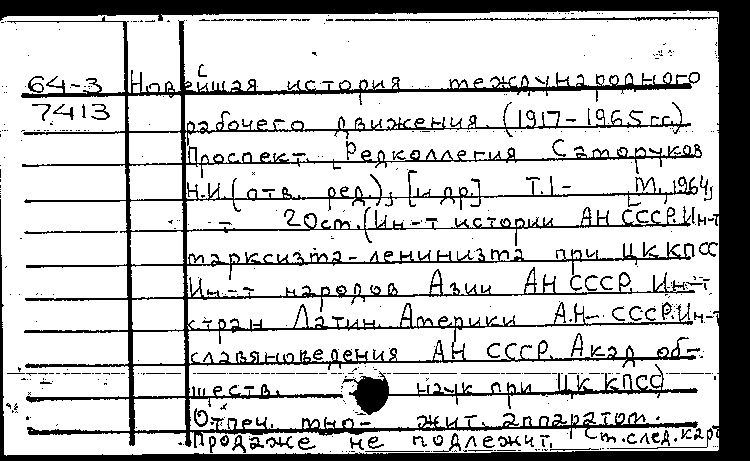 64-3 Новейшая история международного
7413 рабочего движения. (1917-1965гг)
Проспект. Редколлегия Саморуков
Н.И. (отв. ред.), [и др.] Т.1- М., 1964,
- 20см. (Ин-т истории АН СССР. Ин-т
марксизма-ленинизма при ЦК КПСС
Ин-т народов Азии АН СССР. Ин-т
стран Латин. Америки А.Н- СССР. Ин-т
славяноведения АН СССР. Акад об-
ществ. наук при ЦК КПСС)
Отпеч. мно- жит. аппаратом.
Продаже не подлежит. См. след. карт